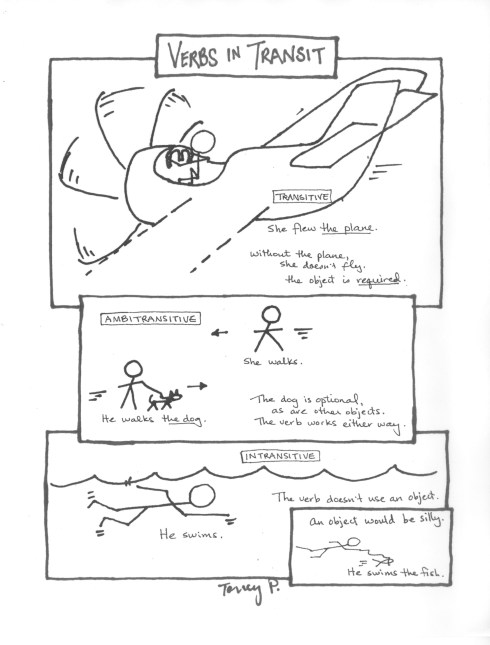 VERBS IN TRANSIT
TRANSITIVE
She flew the plane.
without the plane,
she doesn't fly.
the object is required.
AMBITRANSITIVE
She walks.
He walks the dog.
The dog is optional,
as are other objects.
The verb works either way.
INTRANSITIVE
The verb doesn't use an object.
He swims.
An object would be silly.
He swims the fish.
P.